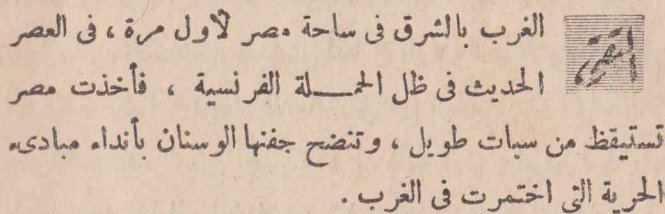 التقى الغرب بالشرق فى ساحة مصر لأول مرة ، فى العصر
الحديث فى ظل الحمـــلة الفرنسية ، فأخذت مصر
تستيقظ من سبات طويل ، وتنضح جفنها الوسنان بأنداء مبادىء
الحرية التى اختمرت فى الغرب .